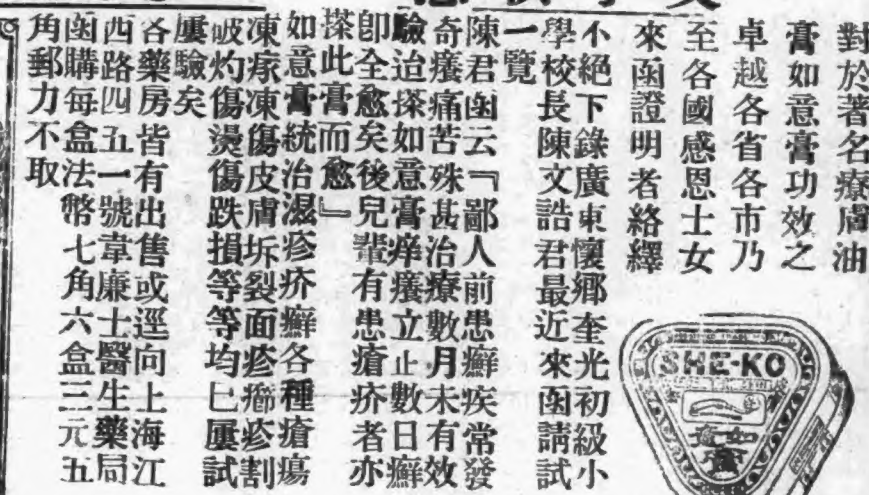 對於著名療膚油
膏如意膏功效之
卓越各省各市乃
至各國感恩士女
來函證明者絡繹
不絕下錄廣東懷鄉奎光初級小
學校長陳文誥君最近來函請試
一覽
陳君函云『鄙人前患癬疾常發
奇癢痛苦殊甚治療數月未有效
驗迨搽如意膏痒癢立止數日癬
卽全愈矣後兒輩有患瘡疥者亦
搽此膏而愈』
如意膏統治濕疹疥癬各種瘡瘍
凍瘃凍傷皮膚坼裂面疹癤疹割
破灼傷燙傷跌損等等均已屢試
屢驗矣
各藥房皆有出售或逕向上海江
西路四五一號韋廉士醫生藥局
函購每盒法幣七角六盒三元五
角郵力不取
SHE-KO
如意膏